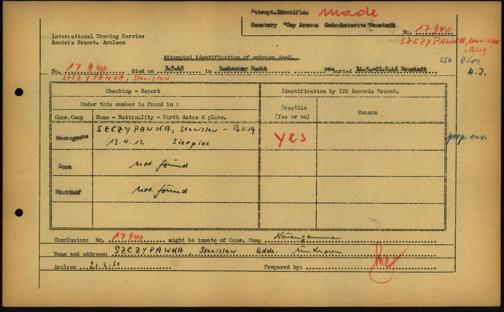 Attempt.Identific. made
Cemetery "Cap Arcona Gedenkstaette Neustadt
No. 17 940
International Tracing Service
Records Branch. Arolsen
SZCZYPAWKA, Stanislaw
Polish
Attempted identification of unknown dead.
No. 17 940 died on 3.5.45 in Luebecker Bucht buried Neustadt
SZCZYPAWKA, Stanislaw
Checking - Report
Identification by ITS Records Branch.
Under this number is found in:
Possible
(Yes or no)
Reason
Conc.Camp Name - Nationality - Birth dates & place.
Neuengamme SZCZYPAWKA, Stanislaw - Polish yes
13.4.12 Sierpiec
Dora not found
Stutthof not found
Conclusion: No. 17 940 might be inmate of Conc. Camp Neuengamme
Name and address: SZCZYPAWKA, Stanislaw Addr. Unknown
Arolsen Prepared by: